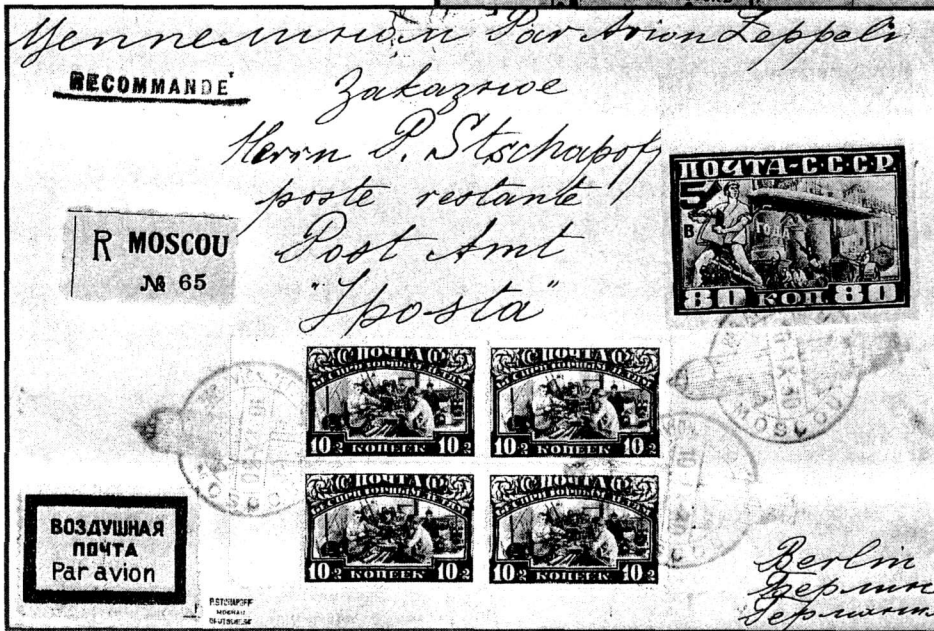 Цеппелином Par Avion Zeppelin
RECOMMANDE
Заказное
Herrn P. Stschapoff
poste restante
Post Amt
"Iposta"
R MOSCOU
№ 65
ПОЧТА-С.С.С.Р.
5
В
80 КОП. 80
ПОЧТА
10 2 КОПЕЕК 10 2
ПОЧТА
10 2 КОПЕЕК 10 2
ПОЧТА
10 2 КОПЕЕК 10 2
ПОЧТА
10 2 КОПЕЕК 10 2
MOSCOU
ВОЗДУШНАЯ
ПОЧТА
Par avion
P.STCHAPOFF
MOSKAU
Berlin
Берлин
Германия